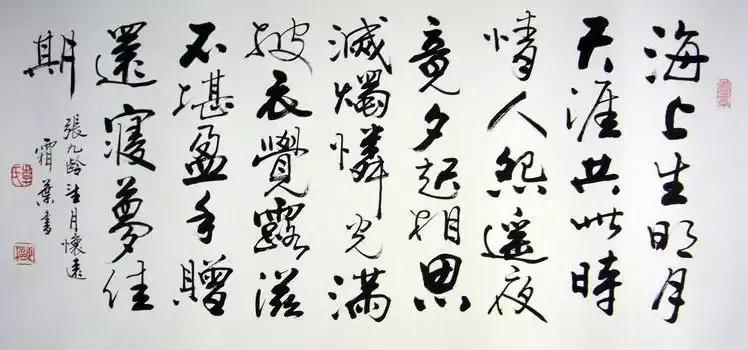 海上生明月
天涯共此時
情人怨遙夜
竟夕起相思
滅燭憐光滿
披衣覺露滋
不堪盈手贈
還寢夢佳
期
張九齡望月懷遠
霜葉書